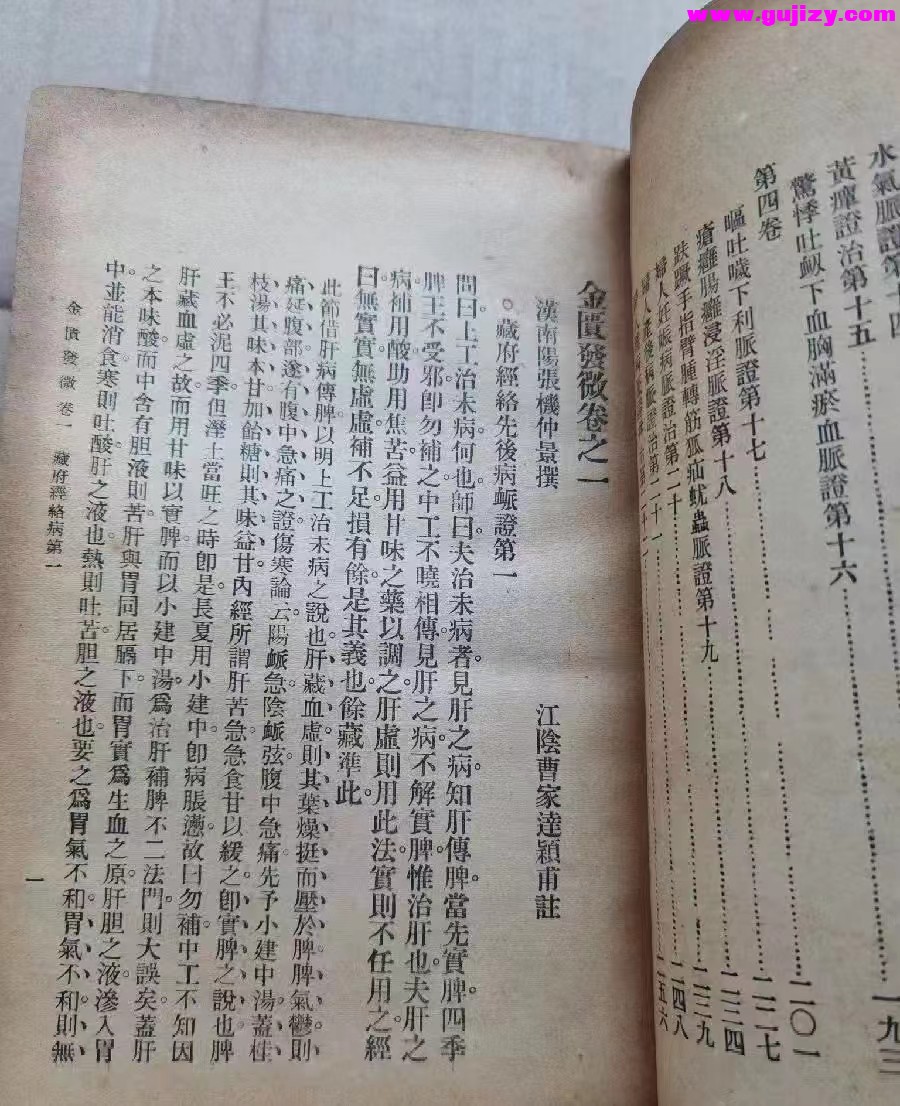 www.gujizy.com
水氣脈證第十四
一九三
黃癉證治第十五
驚悸吐衂下血胸滿瘀血脈證第十六
二〇一
第四卷
嘔吐噦下利脈證第十七
二二七
瘡癰腸癰浸淫脈證第十八
二三四
趺蹶手指臂腫轉筋狐疝蚘蟲脈證第十九
二三九
婦人妊娠病脈證治第二十
二四八
婦人產後病脈證治第二十一
二五六
金匱發微卷之一
漢南陽張機仲景撰
江陰曹家達穎甫註
藏府經絡先後病脈證第一
問曰上工治未病何也。師曰夫治未病者。見肝之病。知肝傳脾。當先實脾。四季
脾王不受邪。卽勿補之。中工不曉相傳。見肝之病。不解實脾。惟治肝也。夫肝之
病。補用酸。助用焦苦。益用甘味之藥以調之。肝虛則用此法。實則不任用之。經
曰。無實實。無虛虛。補不足。損有餘。是其義也。餘藏準此。
此節借肝病傳脾以明上工治未病之說也。肝藏血虛則其葉燥挺而壓於脾脾氣鬱則
痛延腹部遂有腹中急痛之證傷寒論云陽脈急陰脈弦腹中急痛先予小建中湯蓋桂
枝湯其味本甘加飴糖則其味益甘內經所謂肝苦急急食甘以緩之卽實脾之說也脾
王不必泥四季但溼土當旺之時卽是長夏用小建中卽病脹懣故曰勿補中工不知因
肝藏血虛之故而用甘味以實脾而以小建中湯爲治肝補脾不二法門則大誤矣蓋肝
之本味酸而中含有胆液則苦。肝與胃同居膈下而胃實爲生血之原肝胆之液滲入胃
中並能消食寒則吐酸肝之液也熱則吐苦胆之液也要之爲胃氣不和胃氣不和則無
金匱發微 卷一 藏府經絡病第一
一